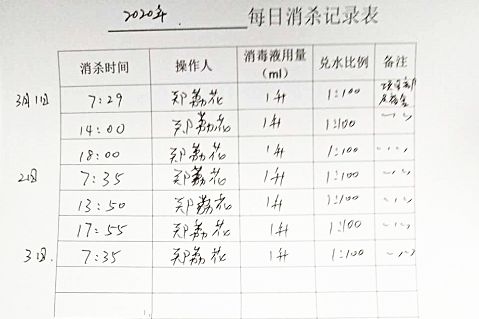 2020年 每日消杀记录表
消杀时间 操作人 消毒液用量(ml) 兑水比例 备注
3月1日 7:29 郑荔花 1升 1:100
14:00 郑荔花 1升 1:100 〃
18:00 郑荔花 1升 1:100 〃
2日 7:35 郑荔花 1升 1:100 〃
13:50 郑荔花 1升 1:100 〃
17:55 郑荔花 1升 1:100 〃
3日 7:35 郑荔花 1升 1:100 〃